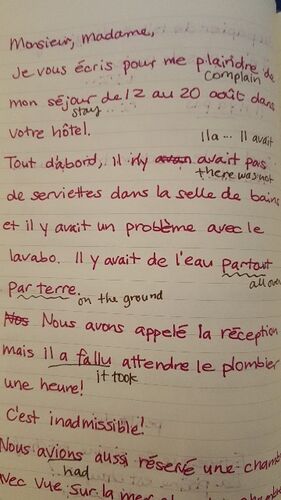 Monsieur, Madame,
Je vous écris pour me plaindre de
complain
mon séjour de 12 au 20 août dans
stay
votre hôtel.
Il a ... Il avait
Tout d'abord, il n'y avait pas
there was not
de serviettes dans la selle de bains
et il y avait un problème avec le
lavabo. Il y avait de l'eau partout
all over
par terre.
on the ground
Nos Nous avons appelé la réception
mais il a fallu attendre le plombier
it took
une heure!
C'est inadmissible!
Nous avions aussi réservé une
had
avec vue sur la mer